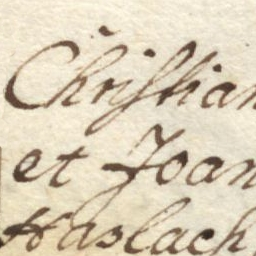 Christian
et Joan
Haslach